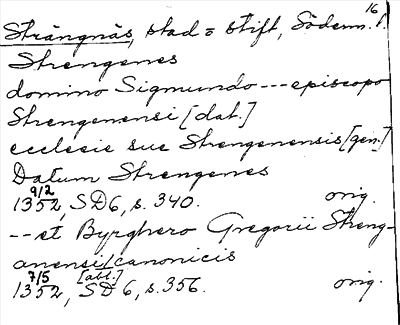 16
Strängnäs, stad o stift, Söderm. l.
Strengenes
domino Sigmundo --- episcopo
Strengenensi [dat.]
ecclecie sue Strengenensis [gen.]
Datum Strengenes
9/2
1352, SD6, s. 340. orig.
-- et Byrghero Gregorii Streng-
anensi/canonicis
7/5 [abl.]
1352, SD 6, s. 356. orig.